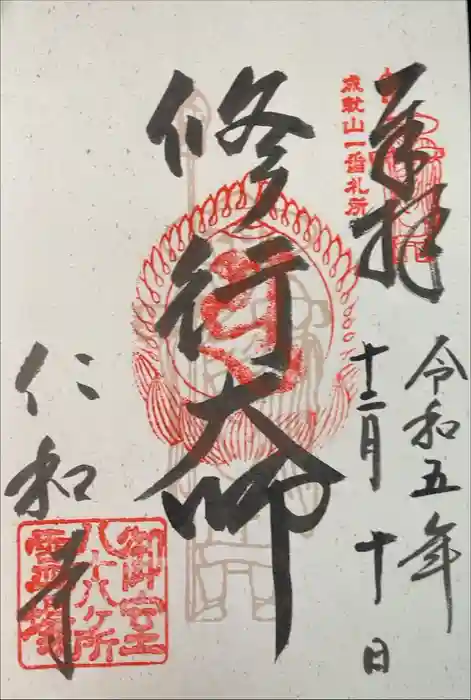 奉拝
成就山一番札所
令和五年
十二月十日
修行大師
仁和寺
御室
八十八ヶ所
霊場